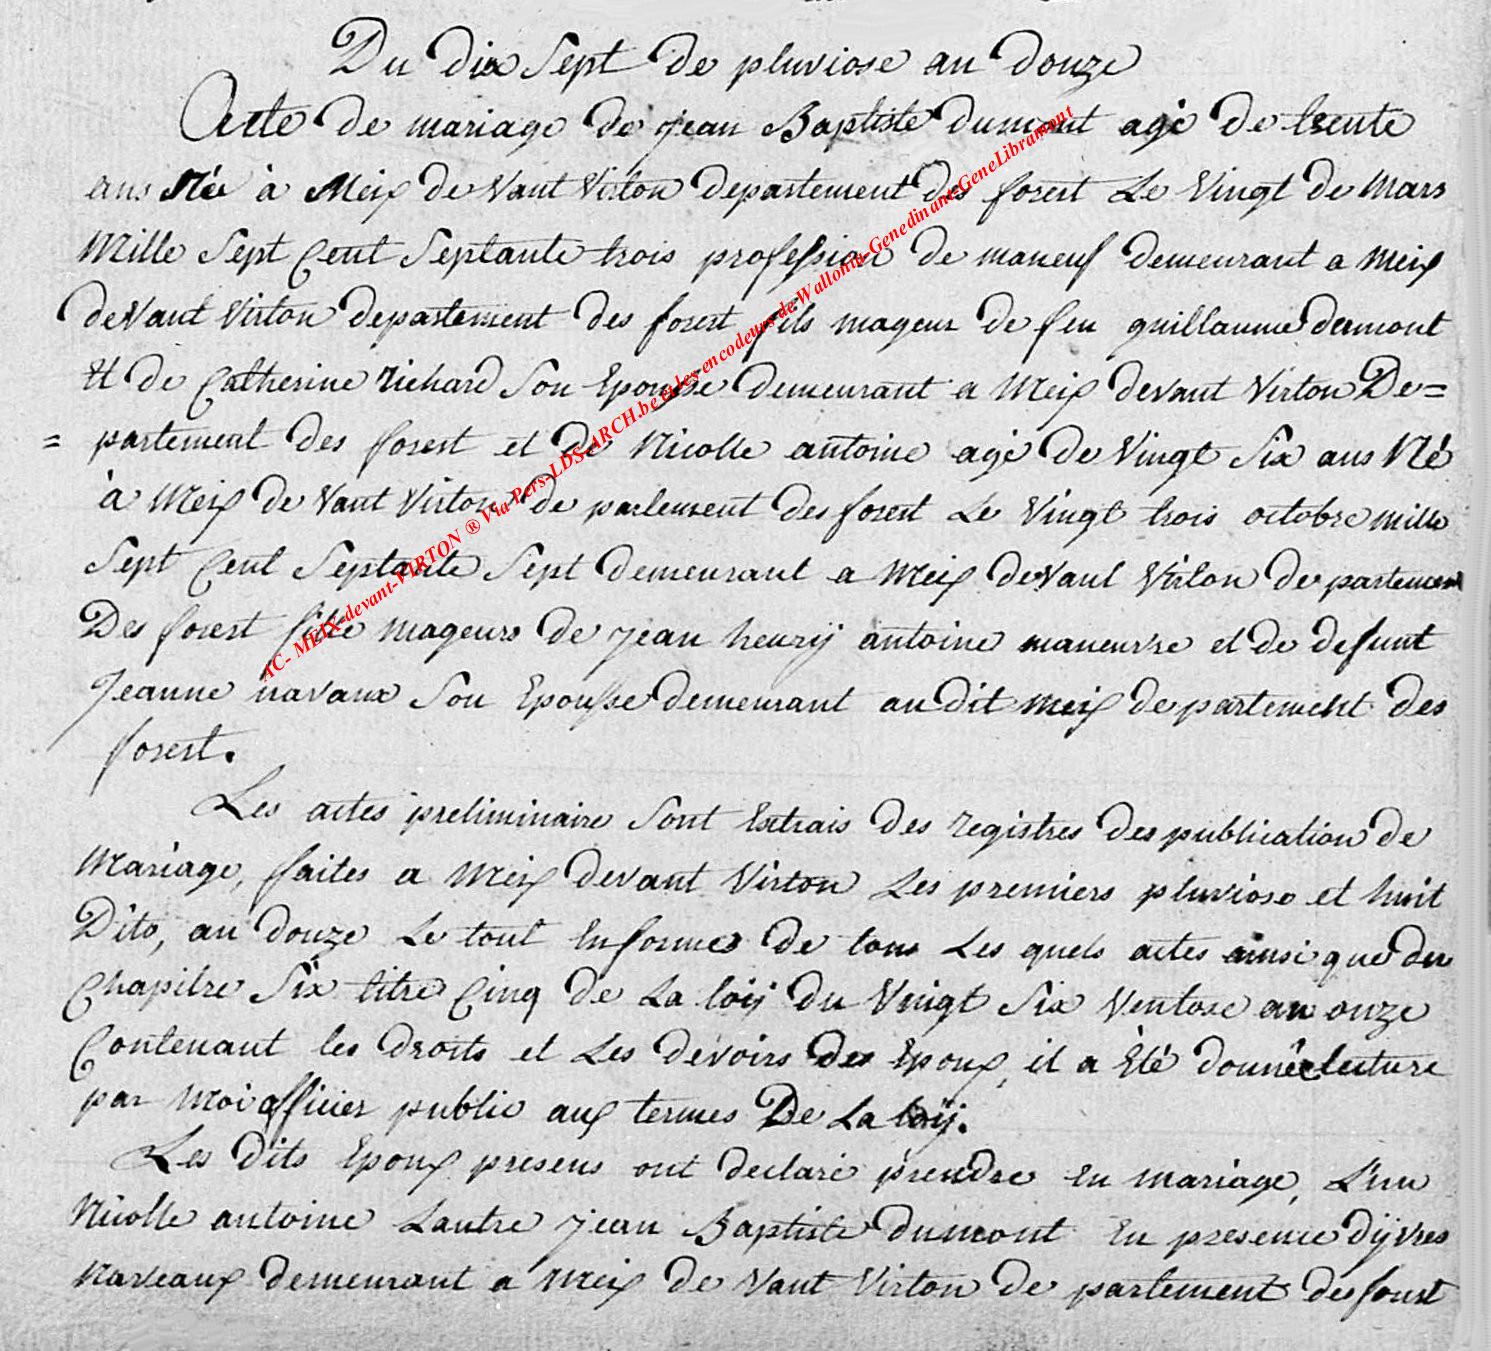 Du dix Sept de pluviose an douze
Acte de mariage de jean Baptiste dumont agé de trente
ans Née à Meix de Vant Virton departement des forest Le Vingt de Mars
Mille Sept Cent Septante trois profession de maneuf demeurant a Meix
deVant Virton departement des forest fils mageur de feu guillaume dumont
Et de Catherine richard Son Epousse demeurant a Meix devant Virton De=
= partement des forest et de Nicolle antoine agé de Vingt Six ans Né
à Meix de Vant Virton de partement des forest Le Vingt trois octobre mille
Sept Cent Septante Sept demeurant a Meix deVant Virton de partement
Des forest fille mageurs de jean henrÿ antoine maneuvre et de defunt
Jeanne navaux Son Epousse demeurant au Dit Meix de partement des
forest.
Les actes preliminaire Sont Extrais des registres des publication de
Mariage, faites a Meix devant Virton Les premiers pluviose et huit
Dito, an douze Le tout En forme de tous Les quels actes ainsi que du
Chapitre Six titre Cinq de La loÿ du Vingt Six Ventose an onze
Contenant les droits et Les devoirs des Epoux, il a Eté donnée lecture
par Moi officier public aux termes De La loÿ.
Les dits Epoux presens ont declaré prendre En mariage, L'un
Nicolle antoine Lautre jean Baptiste dumont En presence dÿvres
Naveaux demeurant a Meix de Vant Virton de partement des forest
AC- MEIX-devant-VIRTON ® Via Pers-LDS-ARCH.be et les encodeurs de Wallonia-Genedinant-GeneLibramont